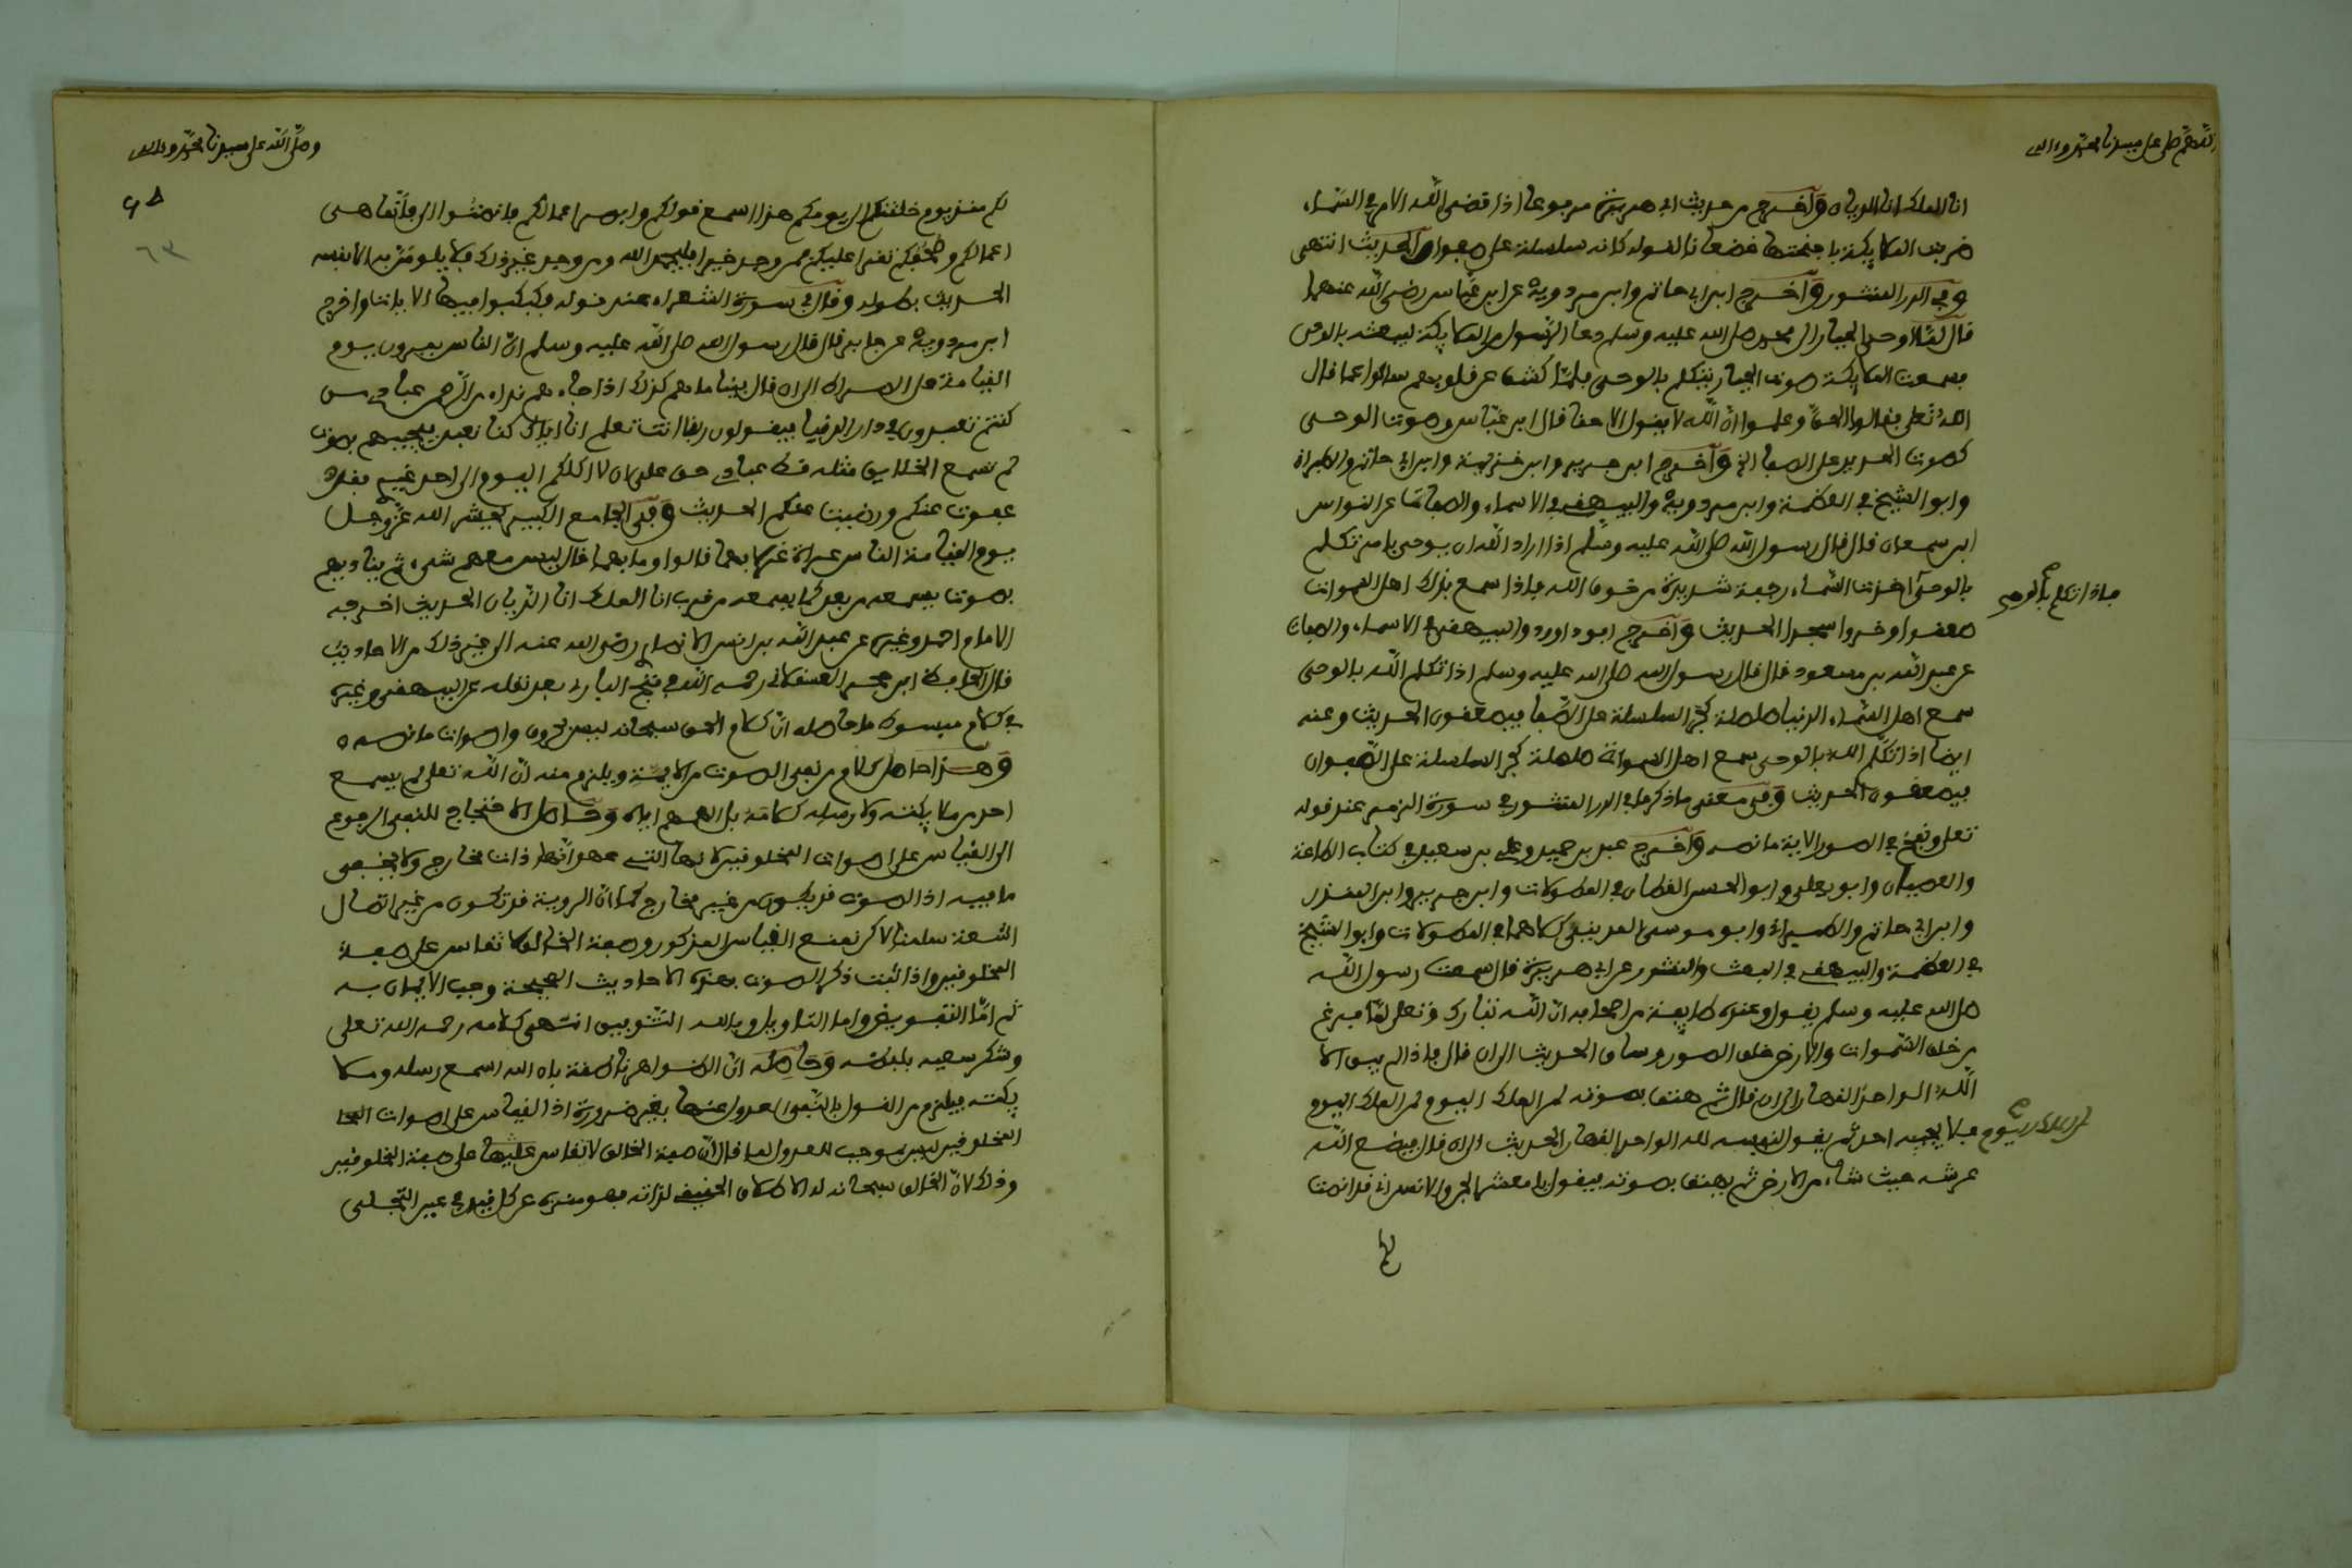 اللهم صل على سيدنا محمد وءاله
انا الملك انا الديان وأخرج من حديث ابي هريرة مرفوعا اذا قضى الله الامر في السماء
ضربت الملايكة باجنحتها خضعانا لقوله كانه سلسلة على صفوان الحديث انتهى
وفي الدر المنثور وأخرج ابن ابي حاتم وابن مردوية عن ابن عباس رضي الله عنهما
قال لما اوحى الجبار الى محمد صلى الله عليه وسلم دعا الرسول من الملايكة ليبعثه بالوحي
فسمعت الملايكة صوت الجبار يتكلم بالوحي فلما كشف عن قلوبهم سالوا عما قال
الله تعلى فقالوا الحق وعلموا ان الله لا يقول الا حقا قال ابن عباس وصوت الوحي
كصوت الحديد على الصفا الخ وأخرج ابن جرير وابن خزيمة وابن ابي حاتم والطبراني
وابو الشيخ في العظمة وابن مردوية والبيهقي في الاسماء والصفات عن النواس
ابن سمعان قال قال رسول الله صلى الله عليه وسلم اذا اراد الله ان يوحي بامر تكلم
بالوحي اخذت السماء رجفة شديدة من خوف الله فاذا سمع بذلك اهل السموات
فاذا تكلم بالوحي
صعقوا وخروا سجدا الحديث وأخرج ابو داوود والبيهقي في الاسماء والصفات
عن عبد الله بن مسعود قال قال رسول الله صلى الله عليه وسلم اذا تكلم الله بالوحي
سمع اهل السماء الدنيا صلصلة كجر السلسلة على الصفا فيصعقون الحديث وعنه
ايضا اذا تكلم الله بالوحي سمع اهل السموات صلصلة كجر السلسلة على الصفوان
فيصعقون الحديث وفي معنى ما ذكر ما في الدر المنثور في سورة الزمر عند قوله
تعلى ونفخ في الصور الاية ما نصه وأخرج عبد بن حميد وعلي بن سعيد في كتاب الطاعة
والعصيان وابو يعلى وابو الحسن القطان في المطولات وابن جرير وابن المنذر
وابن ابي حاتم والطبراني وابو موسى المديني كلاهما في المطولات وابو الشيخ
في العظمة والبيهقي في البعث والنشور عن ابي هريرة قال سمعت رسول الله
صلى الله عليه وسلم يقول وعنده طايفة من اصحابه ان الله تبارك وتعلى لما فرغ
من خلق السموات والارض خلق الصور وساق الحديث الى ان قال فاذا لم يبق الا
الله الواحد القهار الى ان قال ثم هتف بصوته لمن الملك اليوم لمن الملك اليوم
لمن الملك اليوم
فلا يجيبه احد ثم يقول لنفسه لله الواحد القهار الحديث الى ان قال فيضع الله
عرشه حيث شاء من الارض ثم يهتف بصوته فيقول يا معشر الجن والانس اني قد انصت
لكم
وصلى الله على سيدنا محمد وءاله
٦٣
لكم منذ يوم خلقتكم الى يومكم هذا اسمع قولكم وابصر اعمالكم فانصتوا الي فانما هي
اعمالكم وصحفكم تقرا عليكم فمن وجد خيرا فليحمد الله ومن وجد غير ذلك فلا يلومن الا نفسه
الحديث بطوله وقال في سورة الشعراء عند قوله فكبكبوا فيها الاية واخرج
ابن مردوية عن جابر قال قال رسول الله صلى الله عليه وسلم ان الناس يمرون يوم
القيامة على الصراط الى ان قال بينما هم كذلك اذا جاءهم نداء من الرحمن عبادي من
كنتم تعبدون في دار الدنيا فيقولون ربنا انت تعلم انا اياك كنا نعبد فيجيبهم بصوت
لم تسمع الخلايق مثله قط عبادي حق علي ان لا اكلكم اليوم الى احد غيري فقد
عفوت عنكم ورضيت عنكم الحديث وفي الجامع الكبير يحشر الله عز وجل
يوم القيامة الناس عراة غرلا بهما قالوا وما بهما قال ليس معهم شيء ثم يناديهم
بصوت يسمعه من بعد كما يسمعه من قرب انا الملك انا الديان الحديث اخرجه
الامام احمد وغيره عن عبد الله بن انيس الانصاري رضي الله عنه الى غير ذلك من الاحاديث
قال الحافظ ابن حجر العسقلاني رحمه الله في فتح الباري بعد نقله عن البيهقي وغيره
في كلام مبسوط ما حاصله ان كلام الحق سبحانه ليس بحروف واصوات ما نصه
وهذا حاصل كلام من نفى الصوت من الايمة ويلزم منه ان الله تعلى لم يسمع
احد من ملايكته ولا رسله كلامه بل الهمهم اياه وحاصل الاحتجاج للنفي الرجوع
الى القياس على اصوات المخلوقين لانها التي عهد انها ذات مخارج ولا يخفى
ما فيه اذ الصوت قد يكون من غير مخارج كما ان الروية قد تكون من غير اتصال
اشعة سلمنا لاكن نمنع القياس المذكور وصفة الخالق لا تقاس على صفة
المخلوقين واذا ثبت ذكر الصوت بهذه الاحاديث الصحيحة وجب الايمان به
ثم اما التفويض واما التاويل وبالله التوفيق انتهى كلامه رحمه الله تعلى
وشكر سعيه بلفظه وحاصله ان الظواهر ناطقة بان الله اسمع رسله وملا
يكته فيلزم من القول بالنفي العدول عنها بغير ضرورة اذ القياس على اصوات
المخلوقين ليس بموجب للعدول لما قال ان صفة الخالق لا تقاس على صفة المخلوقين
وذلك لان الخالق سبحانه له الاطلاق الحقيقي لذاته فهو منزه عن كل قيد في عين التجلي